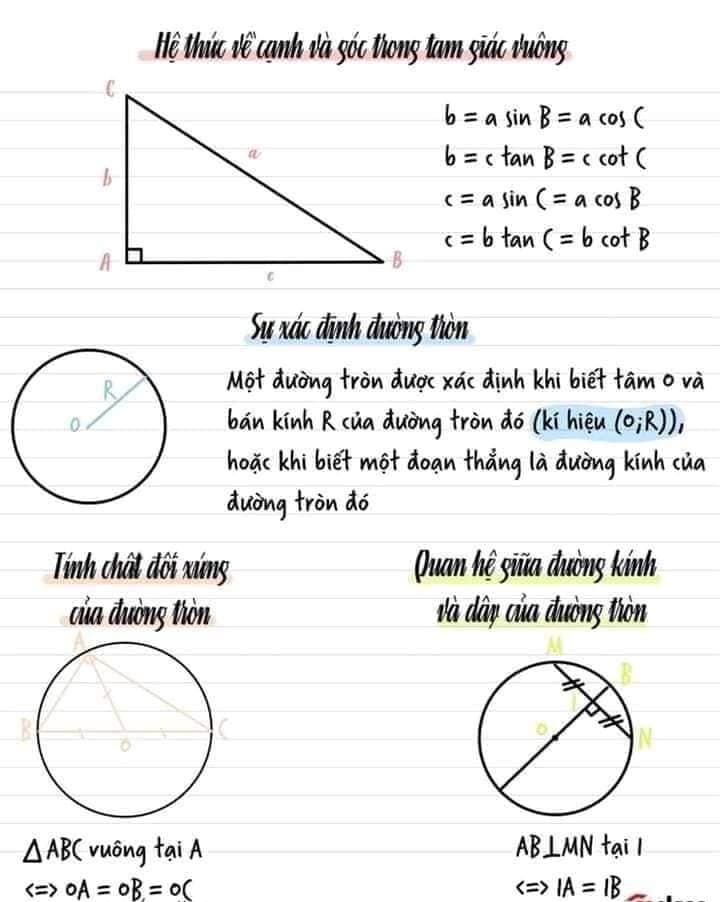 Hệ thức về cạnh và góc trong tam giác vuông
C
b
a
A
B
c
b = a sin B = a cos C
b = c tan B = c cot C
c = a sin C = a cos B
c = b tan C = b cot B
Sự xác định đường tròn
R
O
Một đường tròn được xác định khi biết tâm O và
bán kính R của đường tròn đó (kí hiệu (O;R)),
hoặc khi biết một đoạn thẳng là đường kính của
đường tròn đó
Tính chất đối xứng
của đường tròn
A
B
O
C
△ABC vuông tại A
<=> OA = OB = OC
Quan hệ giữa đường kính
và dây của đường tròn
M
B
I
O
N
AB⊥MN tại I
<=> IA = IB